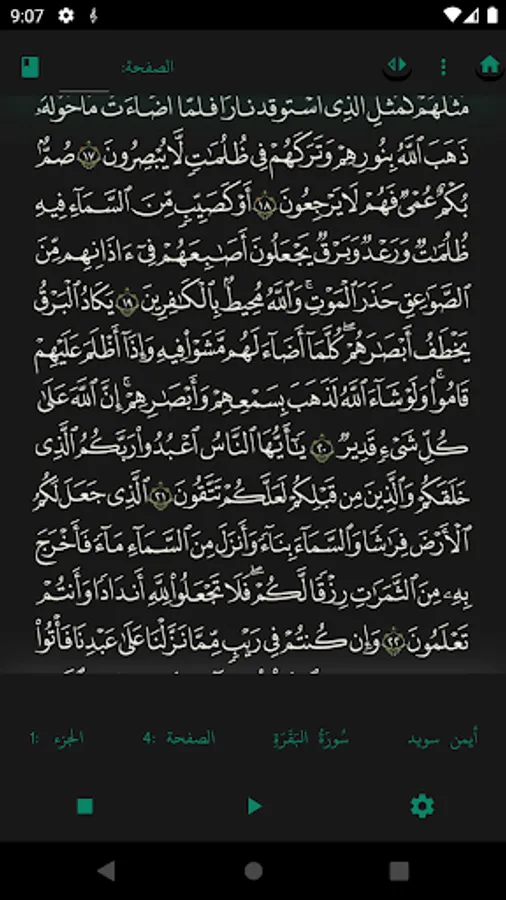 9:07
الصفحة:
مَثَلُهُمْ كَمَثَلِ ٱلَّذِى ٱسْتَوْقَدَ نَارًا فَلَمَّآ أَضَآءَتْ مَا حَوْلَهُۥ
ذَهَبَ ٱللَّهُ بِنُورِهِمْ وَتَرَكَهُمْ فِى ظُلُمَـٰتٍ لَّا يُبْصِرُونَ ١٧ صُمٌّۢ
بُكْمٌ عُمْىٌ فَهُمْ لَا يَرْجِعُونَ ١٨ أَوْ كَصَيِّبٍ مِّنَ ٱلسَّمَآءِ فِيهِ
ظُلُمَـٰتٌ وَرَعْدٌ وَبَرْقٌ يَجْعَلُونَ أَصَـٰبِعَهُمْ فِىٓ ءَاذَانِهِم مِّنَ
ٱلصَّوَٰعِقِ حَذَرَ ٱلْمَوْتِ ۚ وَٱللَّهُ مُحِيطٌۢ بِٱلْكَـٰفِرِينَ ١٩ يَكَادُ ٱلْبَرْقُ
يَخْطَفُ أَبْصَـٰرَهُمْ ۖ كُلَّمَآ أَضَآءَ لَهُم مَّشَوْا۟ فِيهِ وَإِذَآ أَظْلَمَ عَلَيْهِمْ
قَامُوا۟ ۚ وَلَوْ شَآءَ ٱللَّهُ لَذَهَبَ بِسَمْعِهِمْ وَأَبْصَـٰرِهِمْ ۚ إِنَّ ٱللَّهَ عَلَىٰ
كُلِّ شَىْءٍ قَدِيرٌ ٢٠ يَـٰٓأَيُّهَا ٱلنَّاسُ ٱعْبُدُوا۟ رَبَّكُمُ ٱلَّذِى
خَلَقَكُمْ وَٱلَّذِينَ مِن قَبْلِكُمْ لَعَلَّكُمْ تَتَّقُونَ ٢١ ٱلَّذِى جَعَلَ لَكُمُ
ٱلْأَرْضَ فِرَٰشًا وَٱلسَّمَآءَ بِنَآءً وَأَنزَلَ مِنَ ٱلسَّمَآءِ مَآءً فَأَخْرَجَ
بِهِۦ مِنَ ٱلثَّمَرَٰتِ رِزْقًا لَّكُمْ ۖ فَلَا تَجْعَلُوا۟ لِلَّهِ أَندَادًا وَأَنتُمْ
تَعْلَمُونَ ٢٢ وَإِن كُنتُمْ فِى رَيْبٍ مِّمَّا نَزَّلْنَا عَلَىٰ عَبْدِنَا فَأْتُوا۟
أيمن سويد سُورَةُ البَقَرَةِ الصفحة :4 الجزء :1